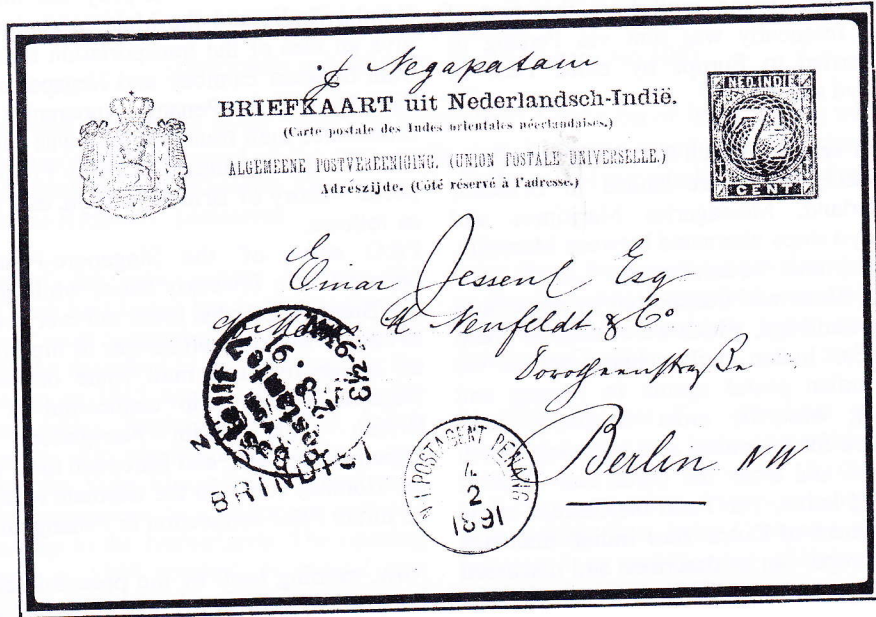 Negapatam
BRIEFKAART uit Nederlandsch-Indië.
(Carte postale des Indes orientales néerlandaises.)
ALGEMEENE POSTVEREENIGING. (UNION POSTALE UNIVERSELLE.)
Adrészijde. (Côté réservé à l'adresse.)
NED. INDIE
7½
CENT
Einar Jessen Esq
Neufeldt & Co
Dorotheenstraße
Berlin NW
BRINDISI
N I POSTAGENT PENANG
4
2
1891